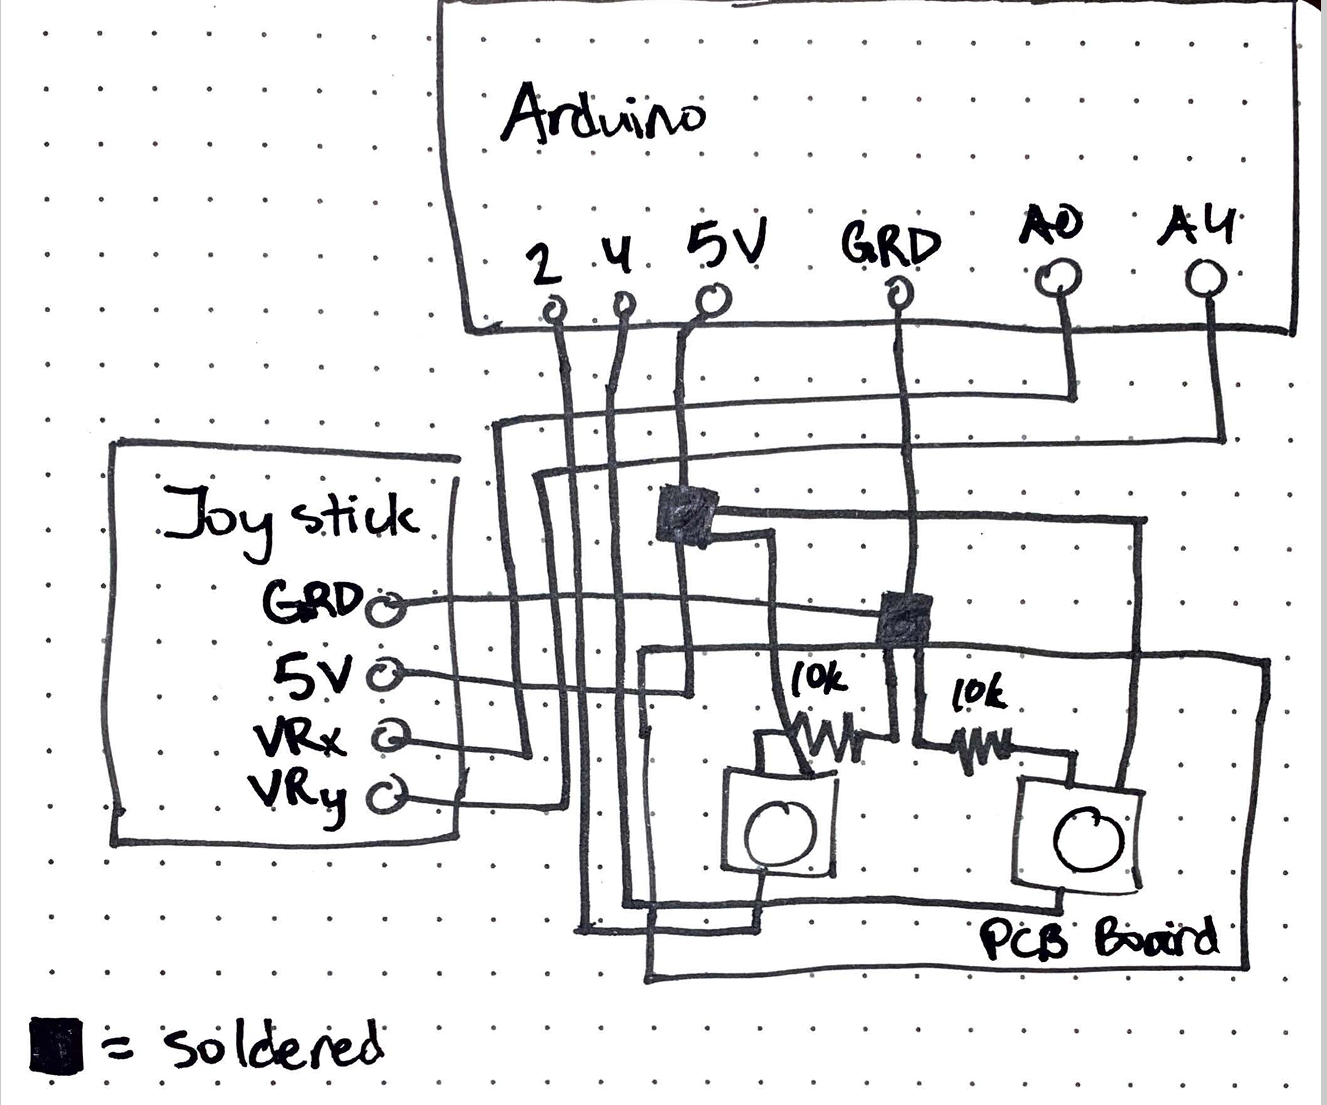 Arduino
2 4 5V GRD A0 A4
Joystick
GRD
5V
VRx
VRy
10k 10k
PCB Board
= soldered